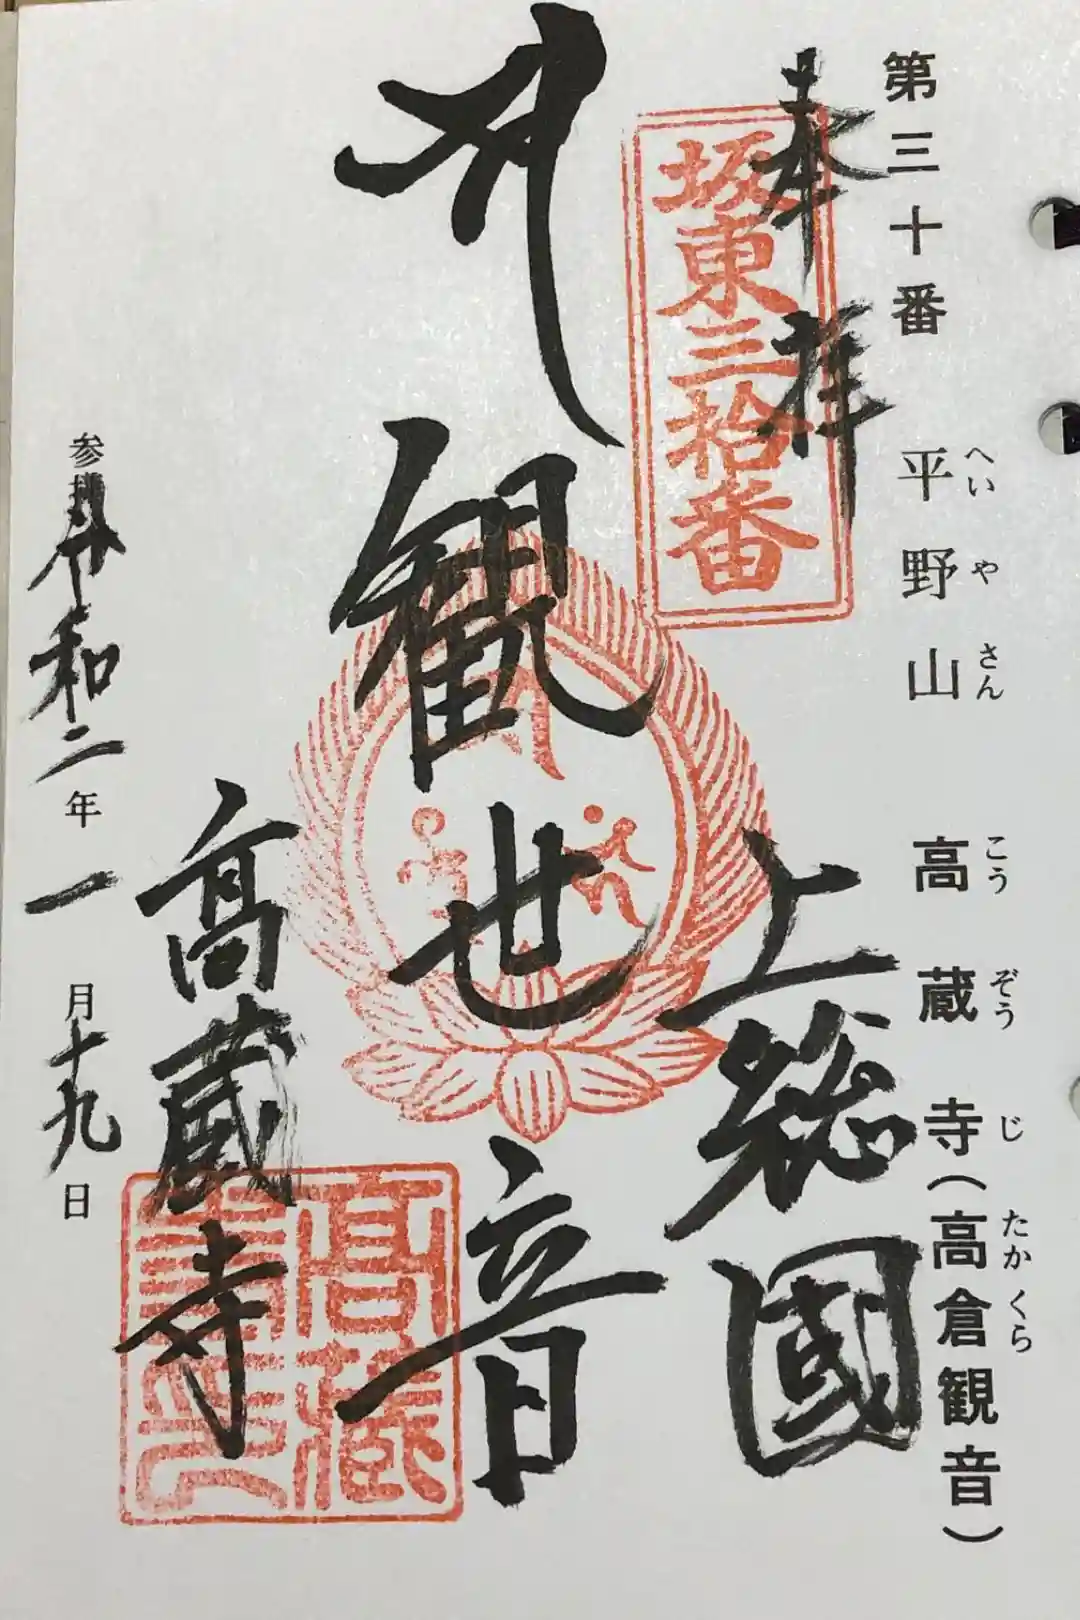 第三十番 平野山 高蔵寺(高倉観音)
へいやさん こうぞうじ たかくら
奉拝
坂東三拾番
上総國
観世音
高蔵寺
参拝令和二年一月十九日